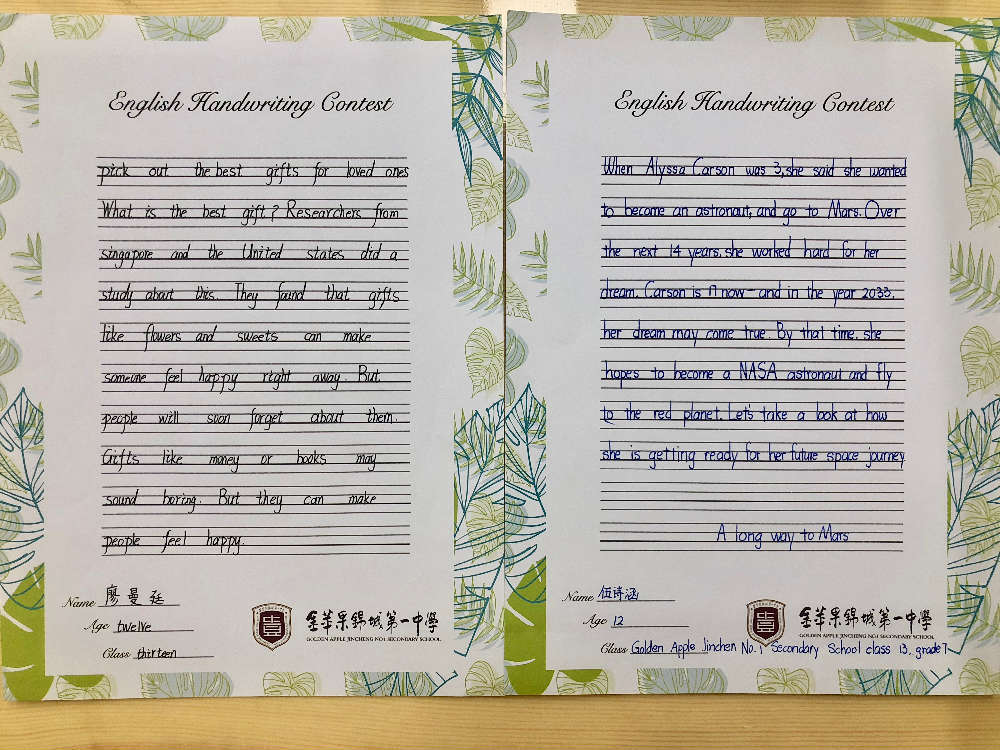 English Handwriting Contest
pick out the best gifts for loved ones
What is the best gift? Researchers from
singapore and the United states did a
study about this. They found that gifts
like flowers and sweets can make
someone feel happy right away. But
people will soon forget about them.
Gifts like money or books may
sound boring. But they can make
people feel happy.
Name 廖曼廷
Age twelve
Class thirteen
金苹果锦城第一中学
GOLDEN APPLE JINCHENG NO.1 SECONDARY SCHOOL
English Handwriting Contest
When Alyssa Carson was 3, she said she wanted
to become an astronaut, and go to Mars. Over
the next 14 years, she worked hard for her
dream. Carson is 17 now — and in the year 2033,
her dream may come true. By that time, she
hopes to become a NASA astronaut and fly
to the red planet. Let's take a look at how
she is getting ready for her future space journey
A long way to Mars
Name 伍诗涵
Age 12
金苹果锦城第一中学
GOLDEN APPLE JINCHENG NO.1 SECONDARY SCHOOL
Class Golden Apple Jinchen No.1 Secondary School class 13, grade 7